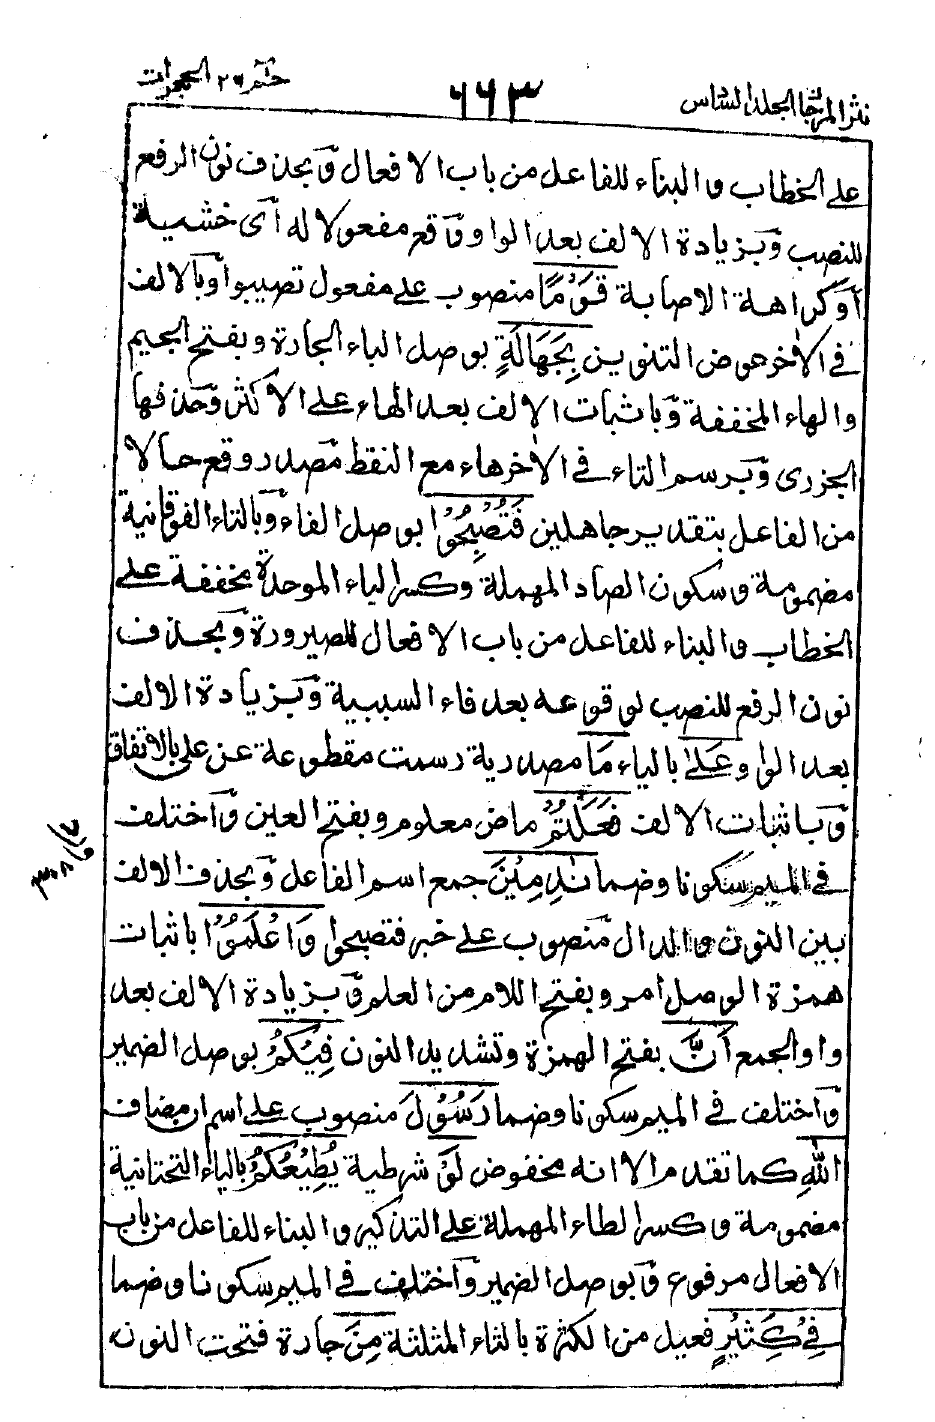 نثر المرجان المجلد السادس
٦٦٣
حٰمٓ ٢٦ الحجرات
على الخطاب والبناء للفاعل من باب الافعال وبحذف نون الرفع
للنصب وبزيادة الالف بعد الواو وقع مفعولا له اى خشية
او كراهة الاصابة قَوْمًا منصوب على مفعول تصيبوا وبالالف
فى الاخر عوض التنوين بِجَهَالَةٍ بوصل الباء الجارة وبفتح الجيم
والهاء المخففة وباثبات الالف بعد الهاء على الاكثر وحذفها
الجزرى وبرسم التاء فى الاخر هاء مع النقط مصدر وقع حالا
من الفاعل بتقدير جاهلين فَتُصْبِحُوْا بوصل الفاء وبالتاء الفوقانية
مضمومة وسكون الصاد المهملة وكسر الباء الموحدة مخففة على
الخطاب والبناء للفاعل من باب الافعال للصيرورة وبحذف
نون الرفع للنصب لوقوعه بعد فاء السببية وبزيادة الالف
بعد الواو وعَلىٰ بالياء مَا مصدرية رسمت مقطوعة عن على بالاتفاق
وباثبات الالف فَعَلْتُمْ ماض معلوم وبفتح العين واختلف
فى الميم سكونا وضما نٰدِمِيْنَ جمع اسم الفاعل وبحذف الالف
بين النون والدال منصوب على خبر فتصبحوا وَاعْلَمُوْا باثبات
همزة الوصل امر وبفتح اللام من العلم وبزيادة الالف بعد
واو الجمع اَنَّ بفتح الهمزة وتشديد النون فِيْكُمْ بوصل الضمير
واختلف فى الميم سكونا وضما رَسُوْلَ منصوب على اسم ان مضاف
اللّٰهِ كما تقدم الا انه مخفوض لَوْ شرطية يُطِيْعُكُمْ بالياء التحتانية
مضمومة وكسر الطاء المهملة على التذكير والبناء للفاعل من باب
الافعال مرفوع وبوصل الضمير واختلف فى الميم سكونا وضما
فِىْ كَثِيْرٍ فعيل من الكثرة بالثاء المثلثة مِنَ جارة فتحت النون